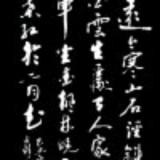 遠上寒山石徑斜白
云生處有人家停
車坐愛楓林晚霜
葉红於二月花